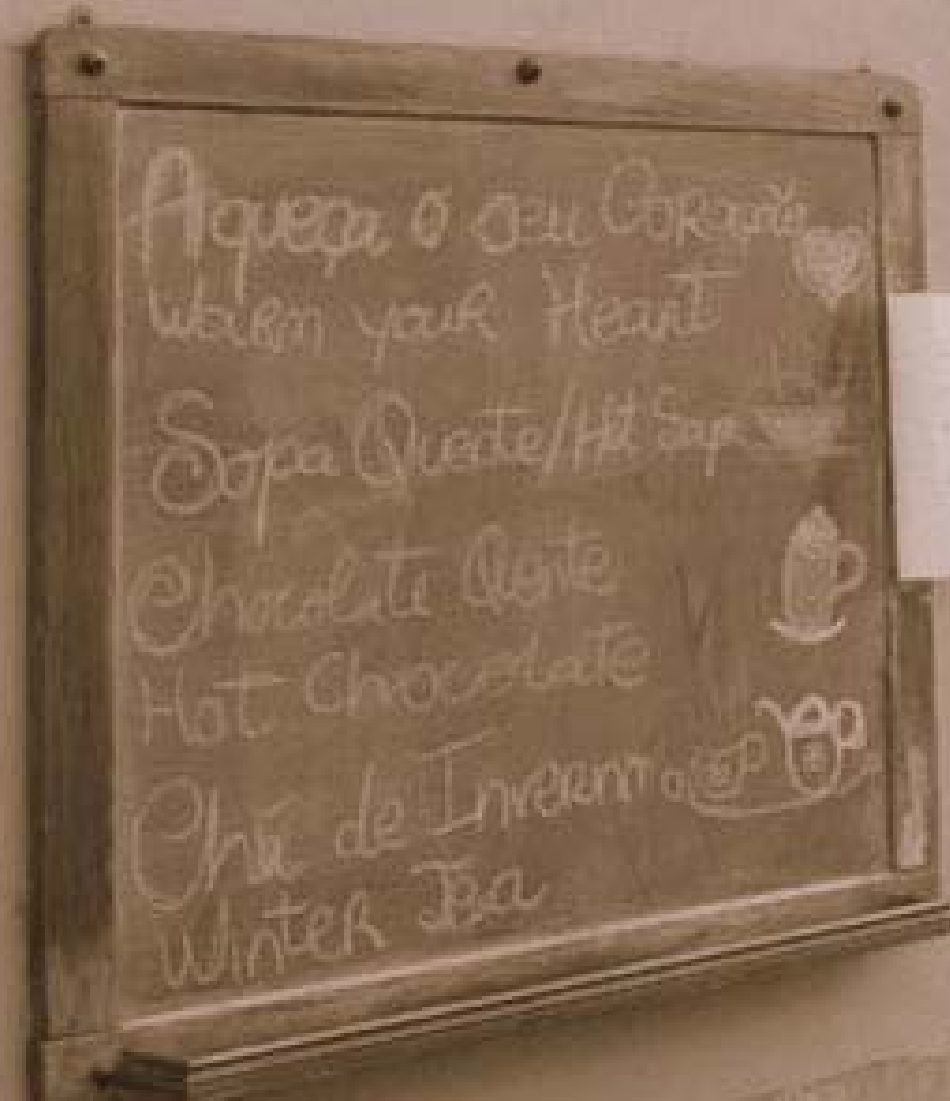 Aqueça o seu Coração
Warm your Heart
Sopa Quente/Hot Soup
Chocolate Quente
Hot Chocolate
Chá de Inverno
Winter Tea